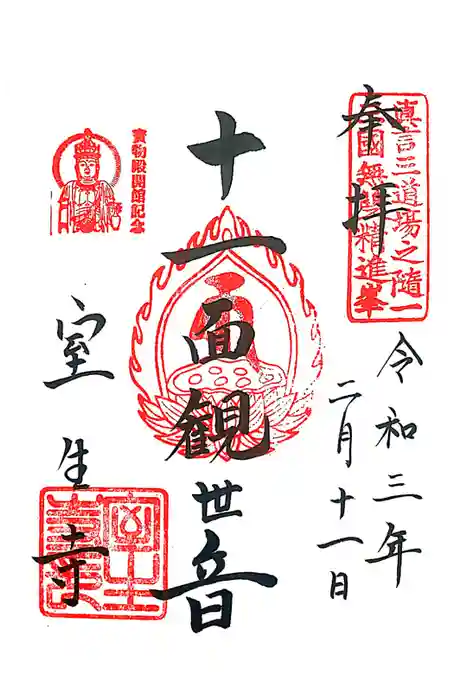 奉拝
真言三道場之随一
皇国無双精進峯
令和三年
二月十一日
十一面観世音
寳物殿開館記念
室生寺